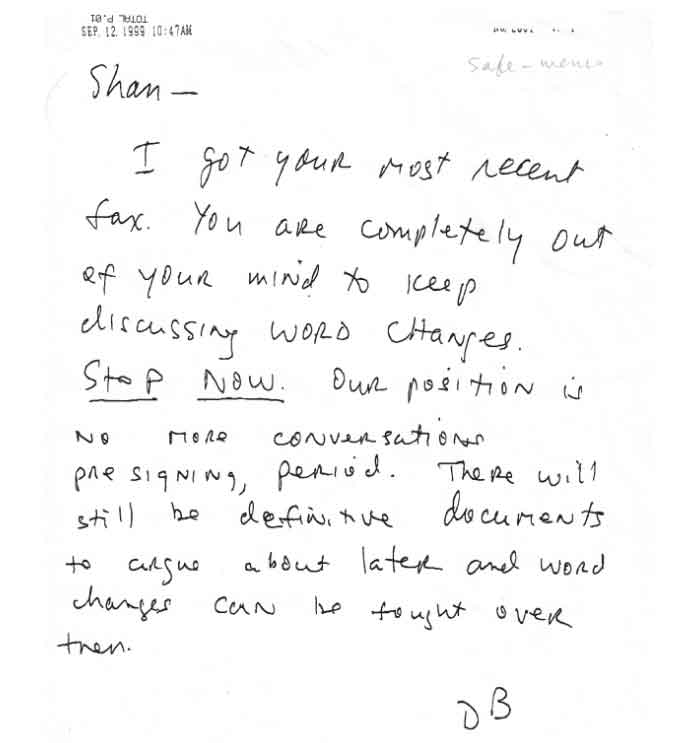 TOTAL P.01
SEP. 12. 1999 10:47AM
Shan —
I got your most recent
fax. You are completely out
of your mind to keep
discussing word changes.
Stop Now. Our position is
no more conversations
presigning, period. There will
still be definitive documents
to argue about later and word
changes can be fought over
then.
DB